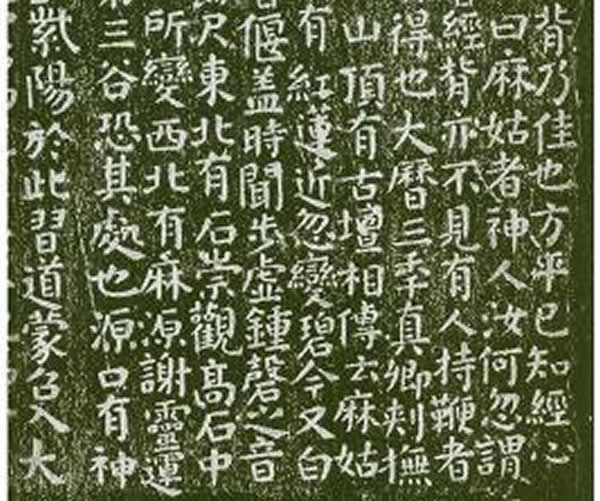 背乃佳也方平已知經心
曰麻姑者神人汝何忽謂
經背亦不見有人持鞭者
得也大曆三年真卿刾撫
山頂有古壇相傳云麻姑
有紅蓮近忽變碧今又白
偃蓋時聞步虛鍾磬之音
尺東北有石崇觀高石中
所變西北有麻源謝靈運
三谷恐其處也源口有神
紫陽於此習道蒙召入大